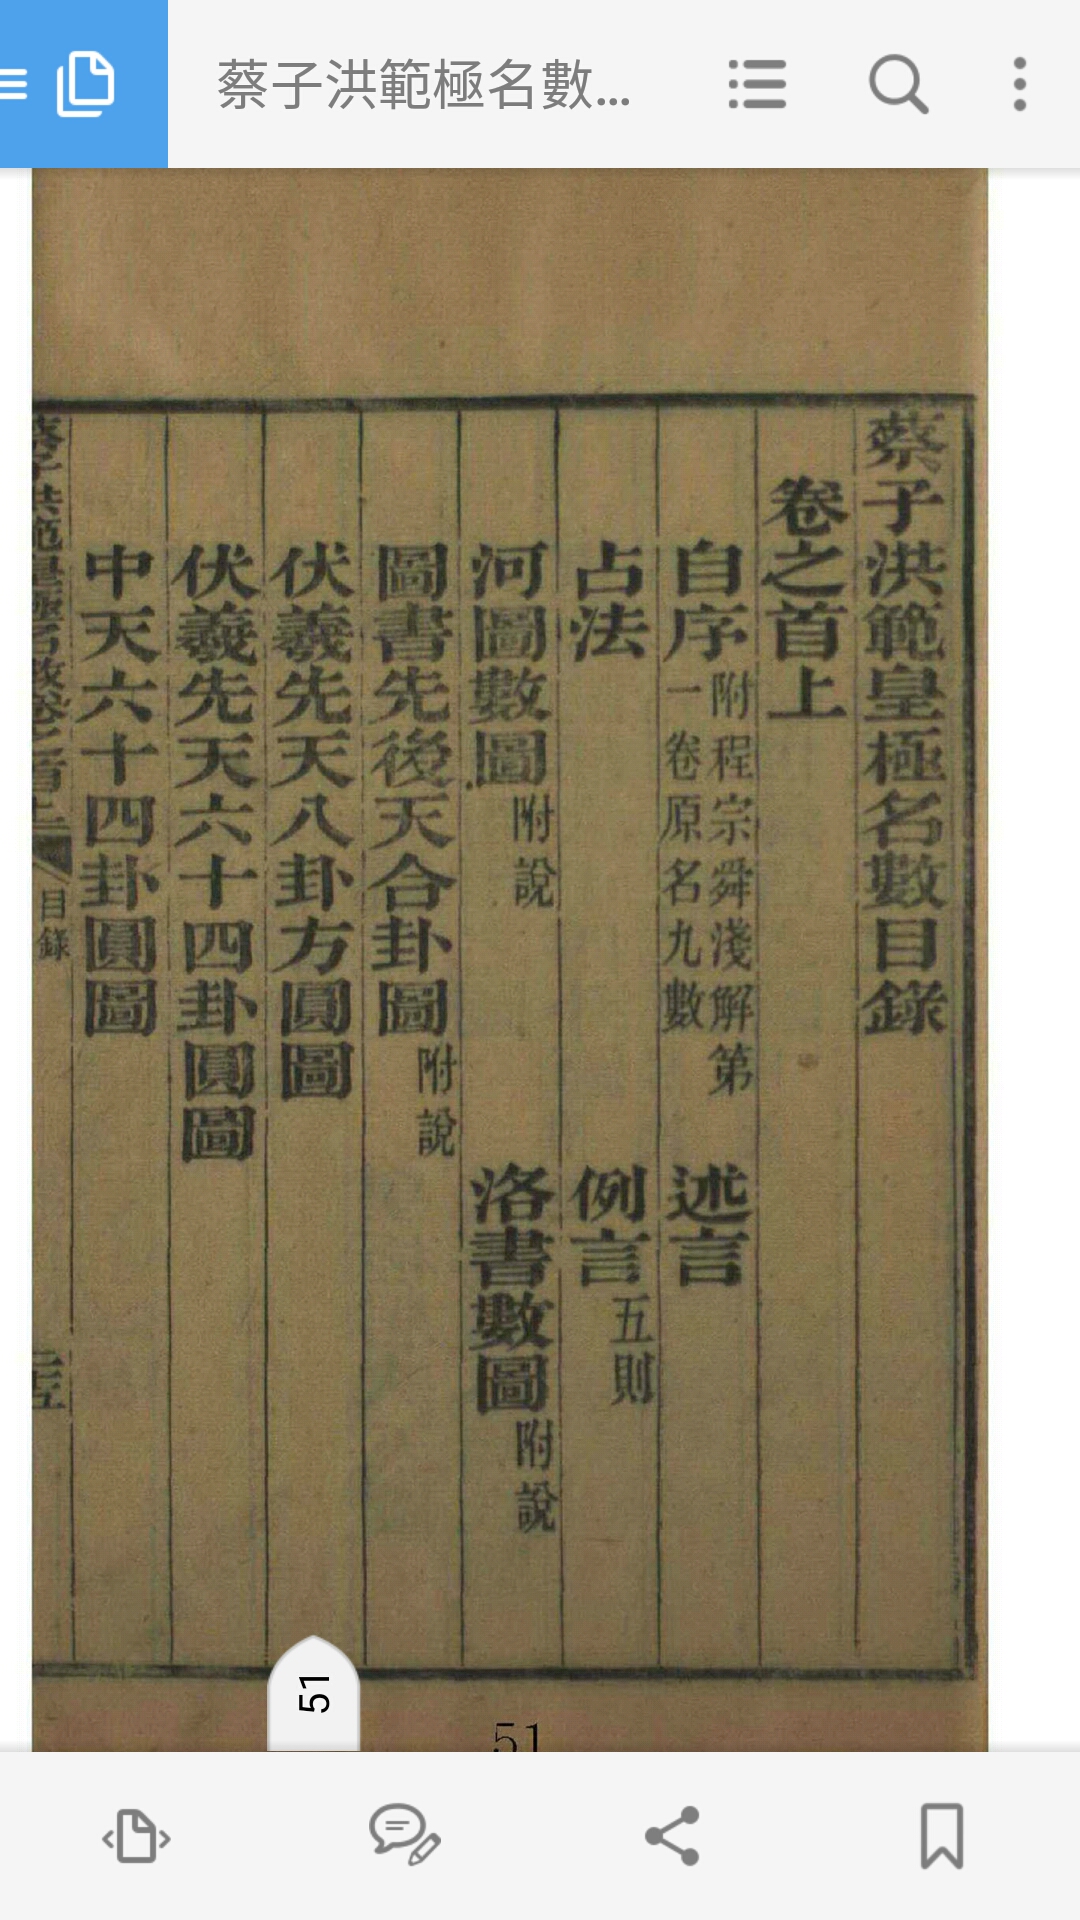 蔡子洪範極名數...
蔡子洪範皇極名數目錄
卷之首上
自序 附程宗舜淺解第一卷原名九數 述言
占法 例言 五則
河圖數圖 附說 洛書數圖 附說
圖書先後天合卦圖 附說
伏羲先天八卦方圓圖
伏羲先天六十四卦圓圖
中天六十四卦圓圖
蔡子洪範皇極名數卷之首上 目錄
51
51